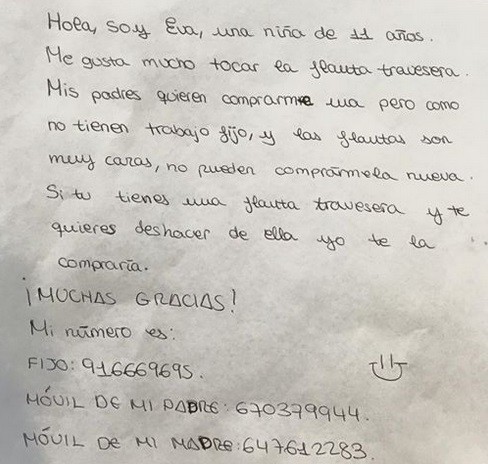 Hola, soy Eva, una niña de 11 años.
Me gusta mucho tocar la flauta travesera.
Mis padres quieren comprarme una pero como
no tienen trabajo fijo, y las flautas son
muy caras, no pueden comprármela nueva.
Si tu tienes una flauta travesera y te
quieres deshacer de ella yo te la
compraría.
¡MUCHAS GRACIAS!
Mi número es:
FIJO: 916669695.
MÓVIL DE MI PADRE: 670379944.
MÓVIL DE MI MADRE: 647612283.